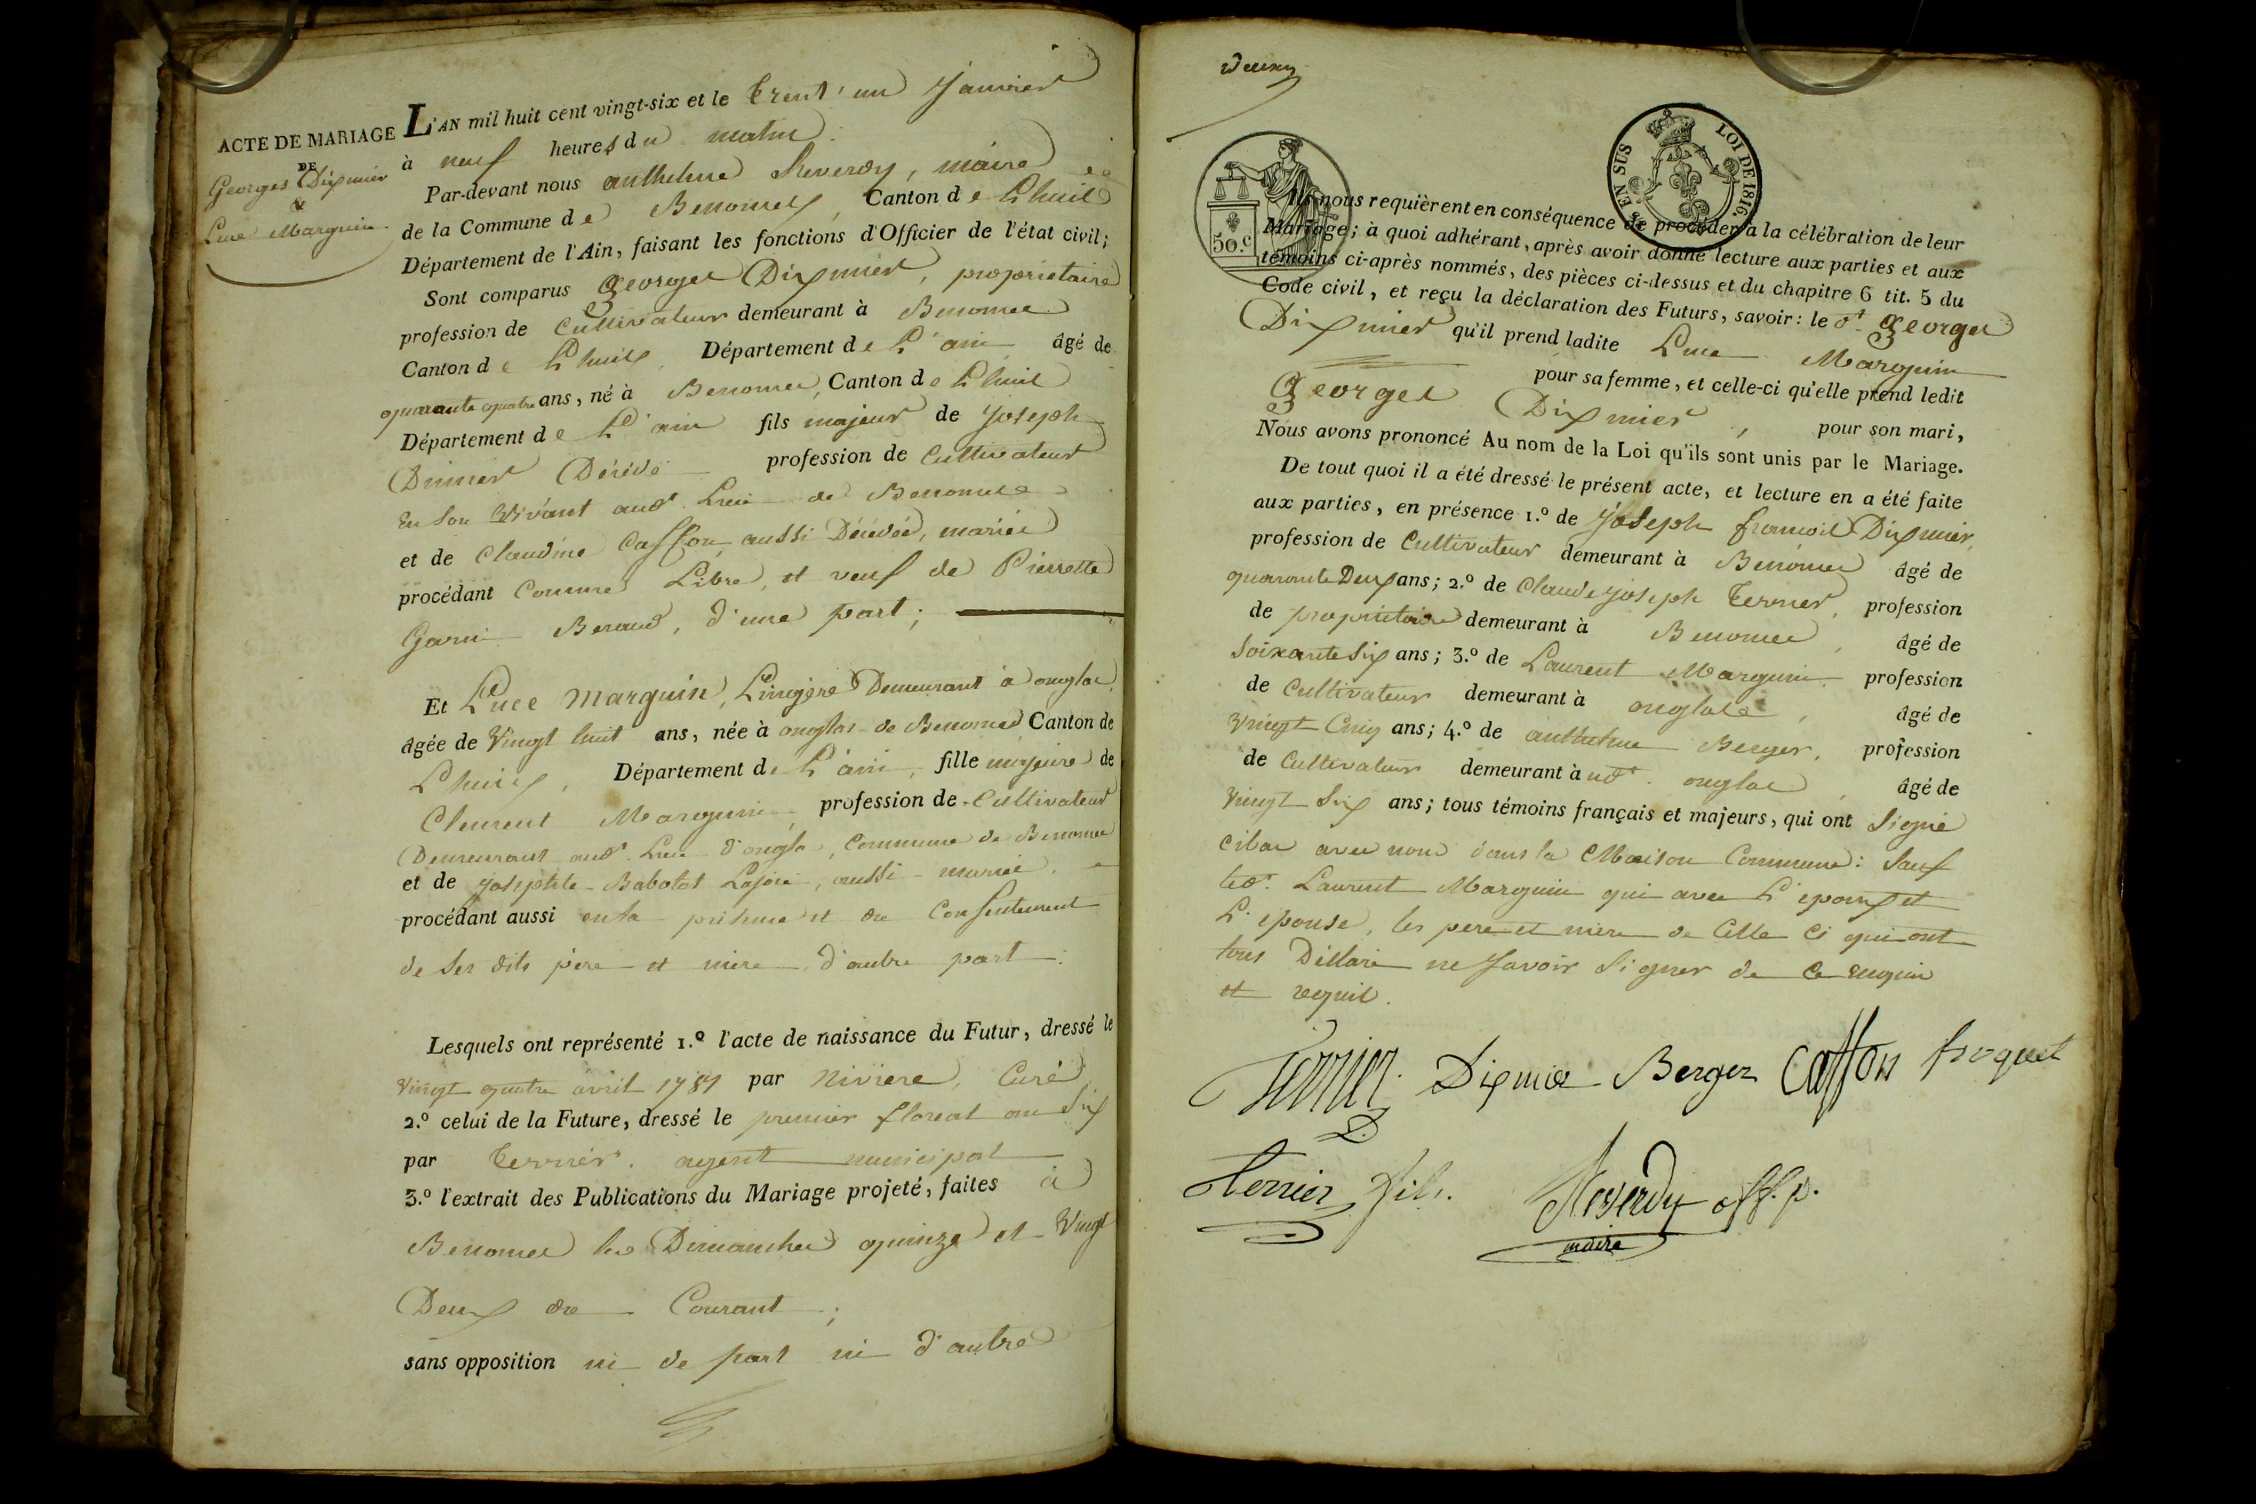 ACTE DE MARIAGE
DE
Georges Dixmier
&
Luce Marguin
L'AN mil huit cent vingt-six et le Trent'un Janvier
à neuf heures du matin
Par-devant nous anthelme Reverdy, maire
de la Commune de Benonces, Canton de Lhuis
Département de l'Ain, faisant les fonctions d'Officier de l'état civil;
Sont comparus Georges Dixmier, propriétaire
profession de Cultivateur demeurant à Benonce
Canton de Lhuis, Département de L'ain âgé de
quarante quatre ans, né à Benonces, Canton de Lhuis
Département de L'ain fils majeur de Joseph
Dimier Dérédé profession de Cultivateur
En Son Vivant aud. Lieu de Benonces
et de Claudine Caffon aussi Décédée, mariée
procédant Comme Libre, et veuf de Pierrette
Garin Beraud, d'une part;
Et Luce Marguin, Lingère Demeurant à onglas,
âgée de Vingt huit ans, née à onglas de Benonces Canton de
Lhuis, Département de L'ain, fille majeure de
Clement Marguin, profession de Cultivateur
Demeurant aud. Lieu d'ongla, Commune de Benonces
et de Josephte Babolat Lajoie, aussi mariée,
procédant aussi en la présence et du Consentement
de Ses dits père et mère, d'autre part.
Lesquels ont représenté 1.º l'acte de naissance du Futur, dressé le
Vingt quatre avril 1781 par Niviere, Curé
2.º celui de la Future, dressé le premier floreal an Six
par Terrier agent municipal
3.º l'extrait des Publications du Mariage projeté, faites à
Benonces les Dimanches quinze et Vingt
Deux du Courant;
sans opposition ni de part ni d'autre
50.c
EN SUS
LOI DE 1816.
Ils nous requièrent en conséquence de procéder à la célébration de leur
Mariage; à quoi adhérant, après avoir donné lecture aux parties et aux
témoins ci-après nommés, des pièces ci-dessus et du chapitre 6 tit. 5 du
Code civil, et reçu la déclaration des Futurs, savoir: le dt. Georges
Dixmier qu'il prend ladite Luce Marguin
pour sa femme, et celle-ci qu'elle prend ledit
Georges Dixmier, pour son mari,
Nous avons prononcé Au nom de la Loi qu'ils sont unis par le Mariage.
De tout quoi il a été dressé le présent acte, et lecture en a été faite
aux parties, en présence 1.º de Joseph francois Dixmier,
profession de Cultivateur demeurant à Benonces âgé de
quarante Deux ans; 2.º de Claude Joseph Terrier, profession
de propriétaire demeurant à Benonces, âgé de
Soixante Six ans; 3.º de Laurent Marguin, profession
de Cultivateur demeurant à onglas, âgé de
Vingt Cinq ans; 4.º de anthelme Berger, profession
de Cultivateur demeurant à ud. onglas, âgé de
Vingt Six ans; tous témoins français et majeurs, qui ont Signé
cibas avec nous dans la Maison Commune: Sauf
led. Laurent Marguin qui avec L'epoux et
L'epouse, les pere et mere de Celle Ci qui ont
tous Déclaré ne Savoir Signer de Ce enquis
et requis.
Terrier Dixmier Berger Caffon froquet
Terrier fils. Reverdy off. p.
maire